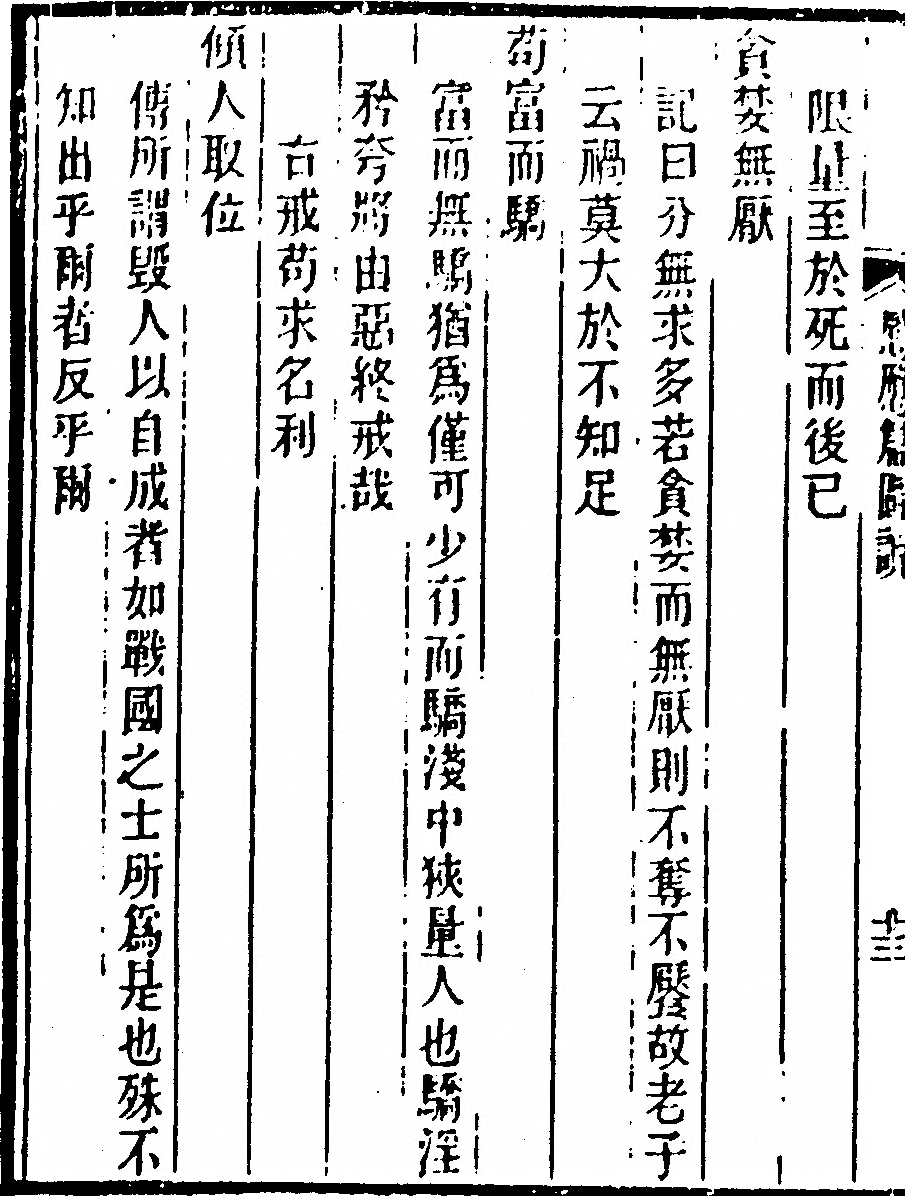 限量至於死而後已
貪婪無厭
記曰分無求多若貪婪而無厭則不奪不饜故老子
云禍莫大於不知足
苟富而驕
富而無驕猶為僅可少有而驕淺中狹量人也驕淫
矜夸將由惡終戒哉
右戒苟求名利
傾人取位
傳所謂毀人以自成者如戰國之士所為是也殊不
知出乎爾者反乎爾
十三